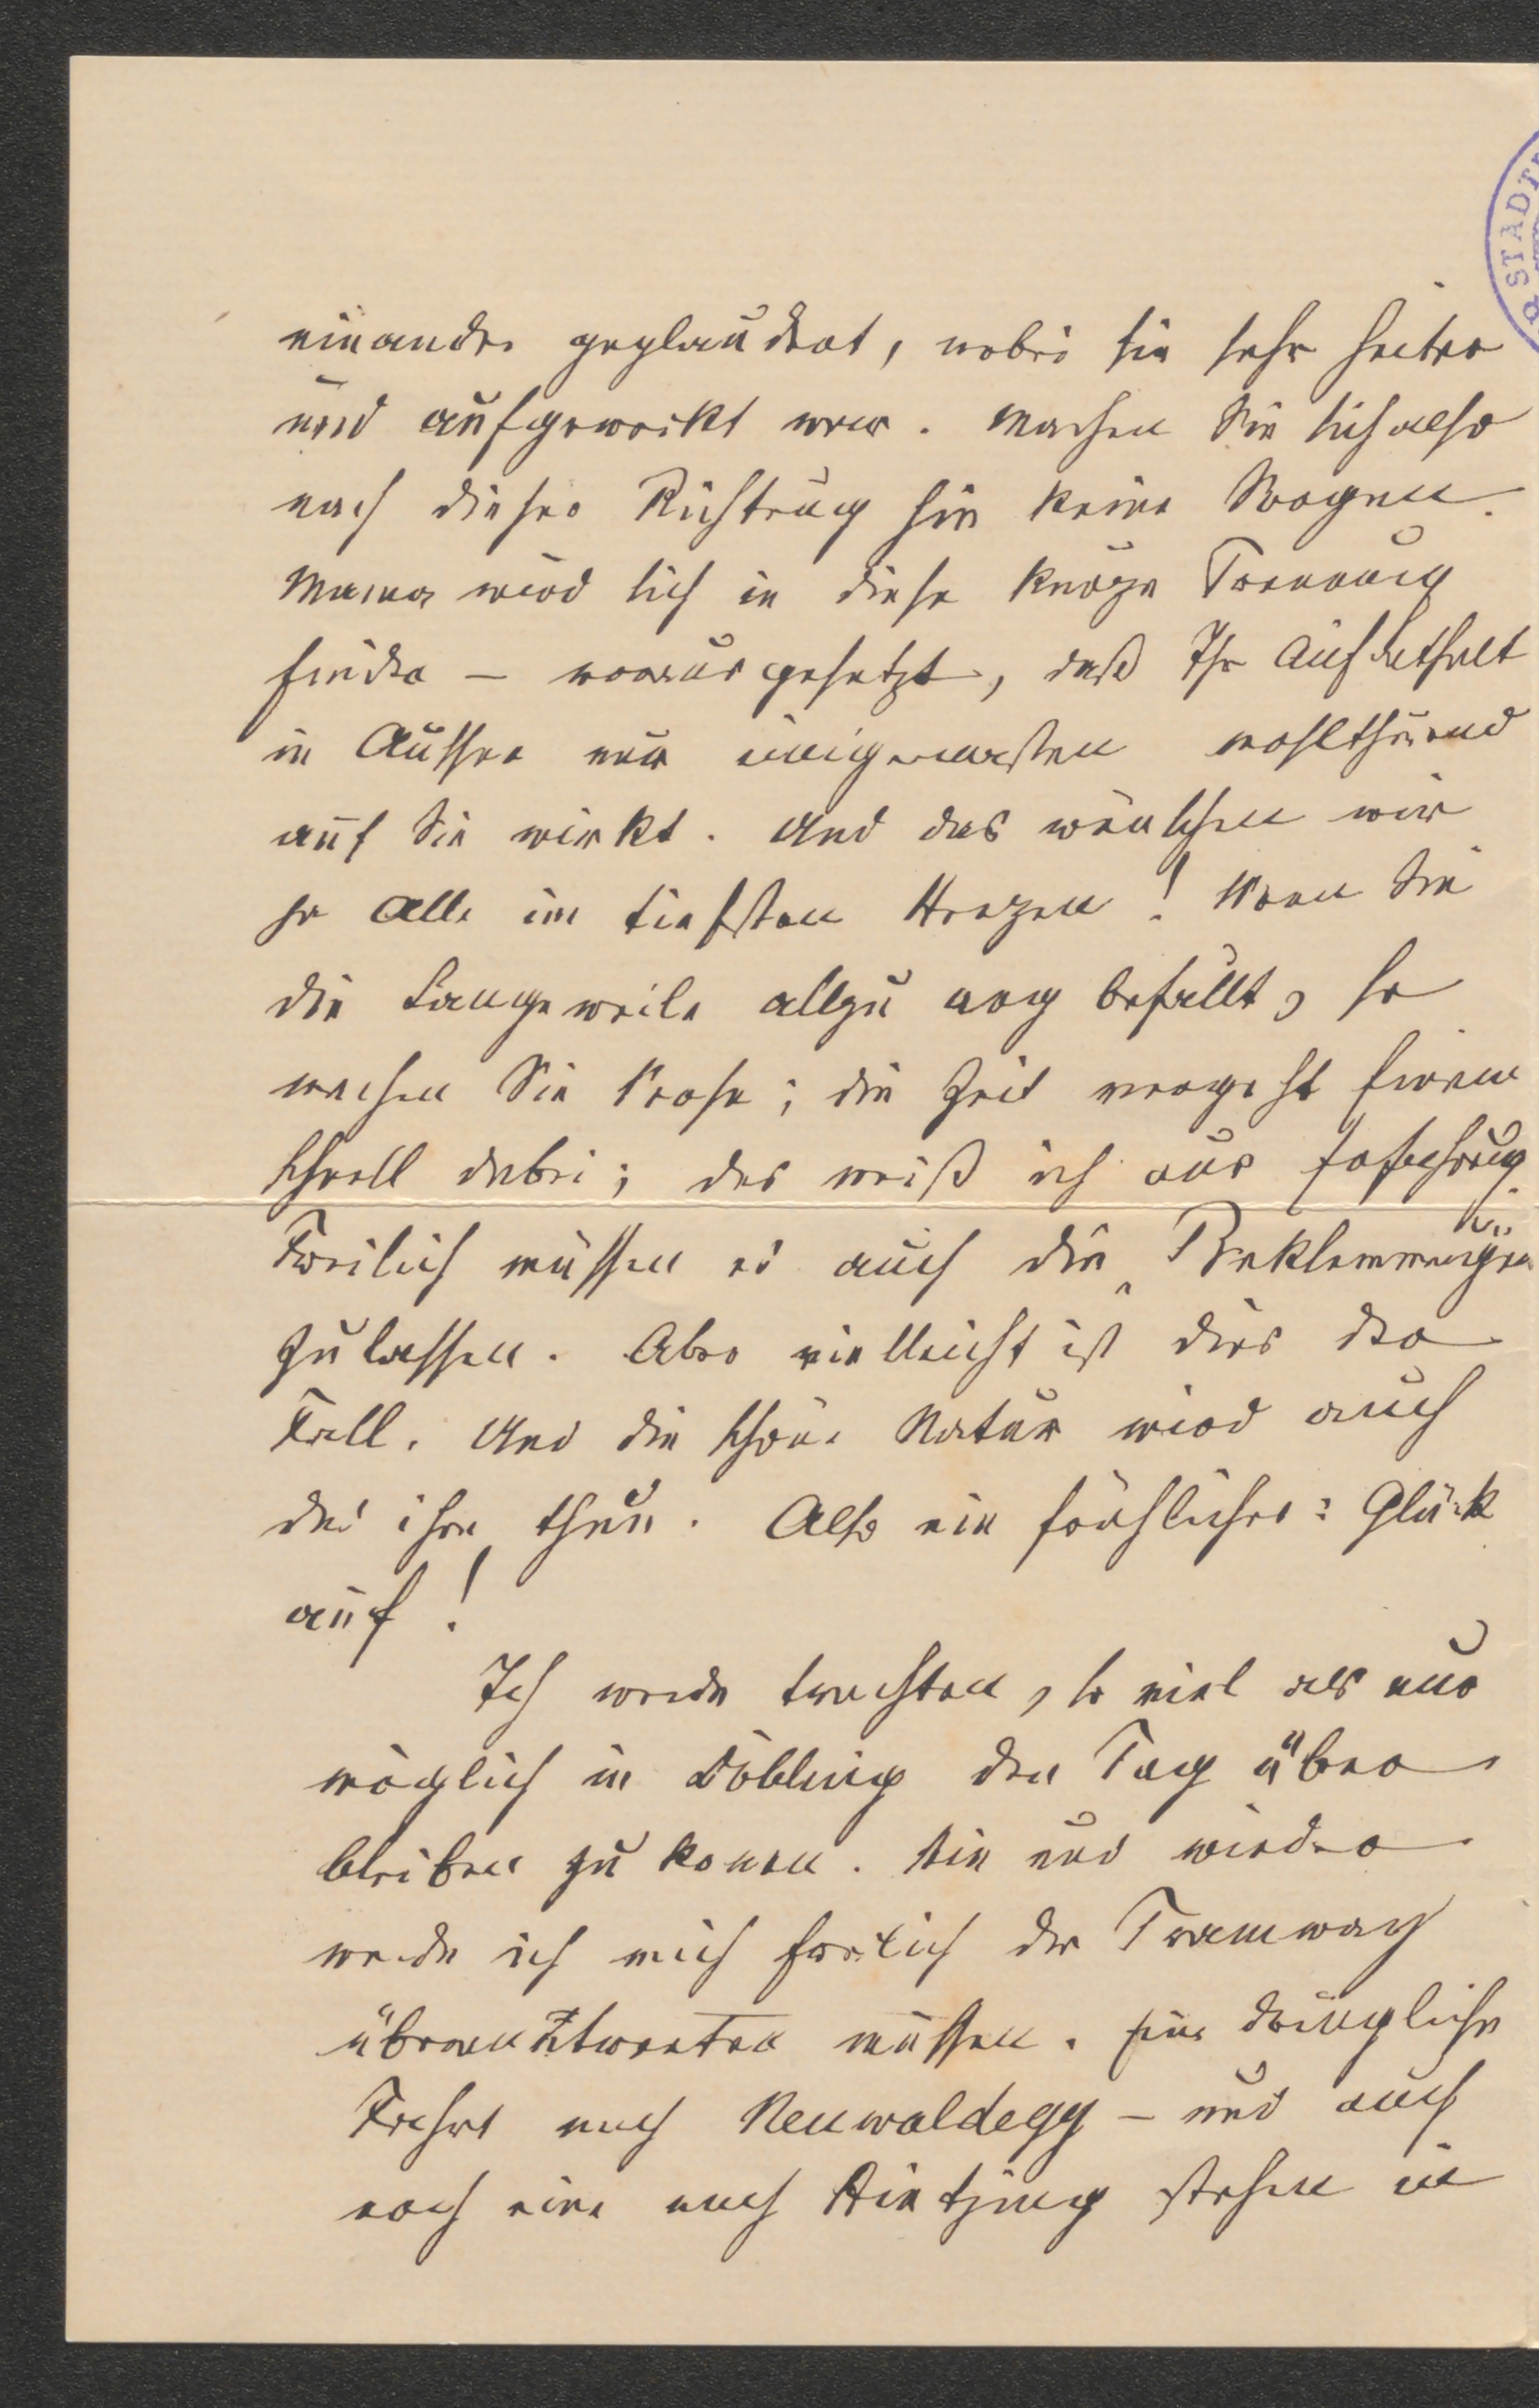 einander geplaudert, wobei sie sehr heiter
und aufgeweckt war. Machen Sie sich also
nach dieser Richtung hin keine Sorgen.
Mama wird sich in diese kurze Trennung
finden – vorausgesetzt, daß Ihr Aufenthalt
in Aussee nur einigermaßen wohlthuend
auf Sie wirkt. Und das wünschen wir
ja Alle im tiefsten Herzen! Wenn Sie
die Langeweile allzu arg befällt, so
machen Sie Verse; die Zeit vergeht
schnell dabei; das weiß ich aus Erfahrung.
Freilich müssen es auch die Beklemmungen
zulassen. Aber vielleicht ist dies der
Fall. Und die schöne Natur wird auch
das ihre thun. Also ein fröhliches: Glück
auf!
Ich werde trachten, so viel als nur
möglich in Döbling den Tag über
bleiben zu können. Hin und wieder
werde ich mich freilich der Tramway
überantworten müssen. Eine dringliche
Fahrt nach Neuwaldegg – und auch
noch eine nach Hietzing stehen in
STADT